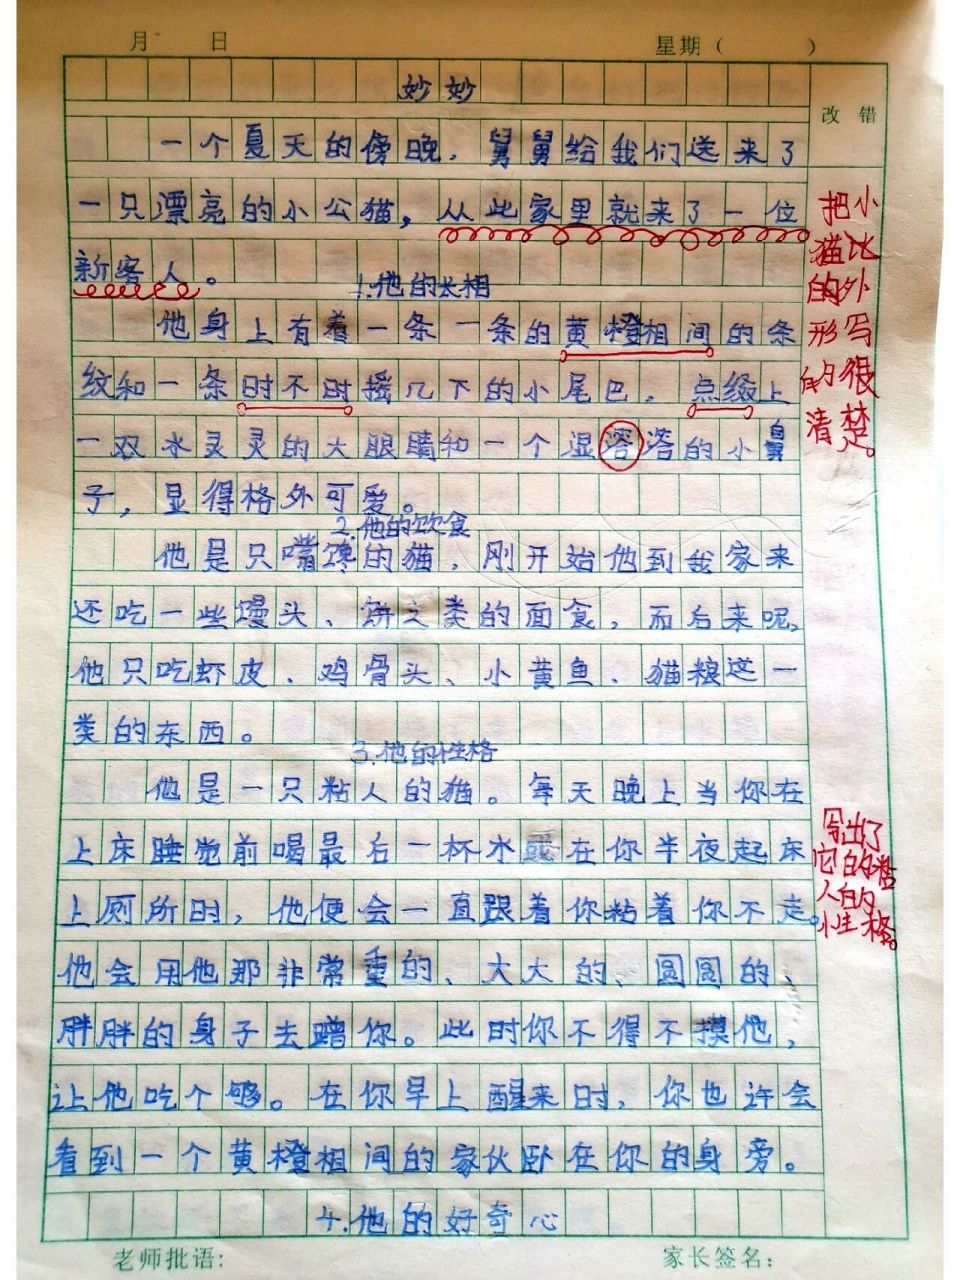 月 日 星期( )
妙妙
改错
一个夏天的傍晚,舅舅给我们送来了
一只漂亮的小公猫,从此家里就来了一位
新客人。
把小
猫比
的外
形写
的很
清楚。
1.他的长相
他身上有着一条一条的黄橙相间的条
纹和一条时不时摇几下的小尾巴,点缀上
一双水灵灵的大眼睛和一个湿溚溚的小鼻
子,显得格外可爱。
2.他的饮食
他是只嘴馋的猫,刚开始他到我家来
还吃一些馒头、饼之类的面食,而后来呢,
他只吃虾皮、鸡骨头、小黄鱼、猫粮这一
类的东西。
3.他的性格
他是一只粘人的猫。每天晚上当你在
上床睡觉前喝最后一杯水或在你半夜起床
上厕所时,他便会一直跟着你粘着你不走。
他会用他那非常重的、大大的、圆圆的、
胖胖的身子去蹭你。此时你不得不摸他,
让他吃个够。在你早上醒来时,你也许会
看到一个黄橙相间的家伙卧在你的身旁。
写出了
它的粘
人的
性格。
4.他的好奇心
老师批语: 家长签名: